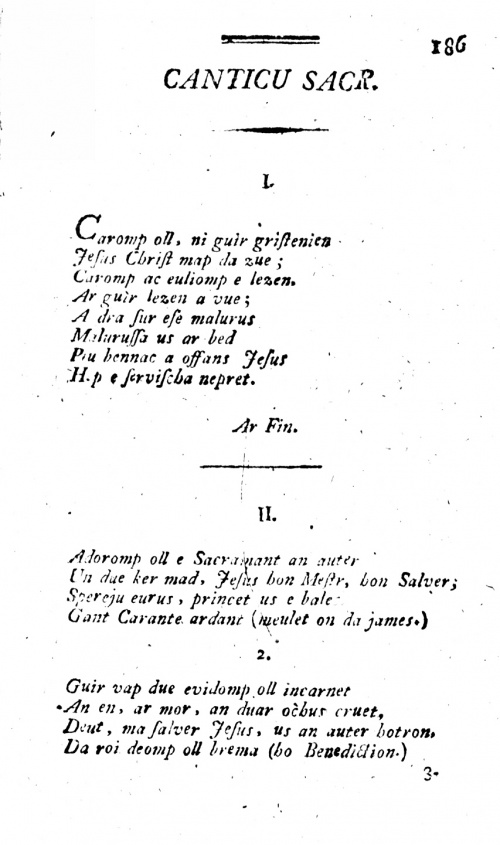 186
CANTICU SACR.
I.
Caromp oll, ni guir griſtenien
Jeſus Chriſt map da zue ;
Caromp ac euliomp e lezen.
Ar guir lezen a vue ;
A dra ſur eſe malurus
Maluruſſa us ar bed
Piu bennac a offans Jeſus
Hep e ſerviſcha nepret.
Ar Fin.
II.
Adoromp oll e Sacramant an auter
Un due ker mad, Jeſus hon Meſtr, hon Salver;
Spereju eurus, princet us e bale
Gant Carante ardant (meulet on da james.)
2.
Guir vap due evidomp oll incarnet
An en, ar mor, an duar ochus cruet,
Deut, ma ſalver Jeſus, us an auter hotron.
Da roi deomp oll brema (ho Benediction.)
3.